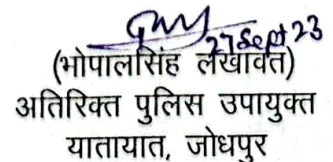 27 Sept 23
(भोपालसिंह लखावत)
अतिरिक्त पुलिस उपायुक्त
यातायात, जोधपुर